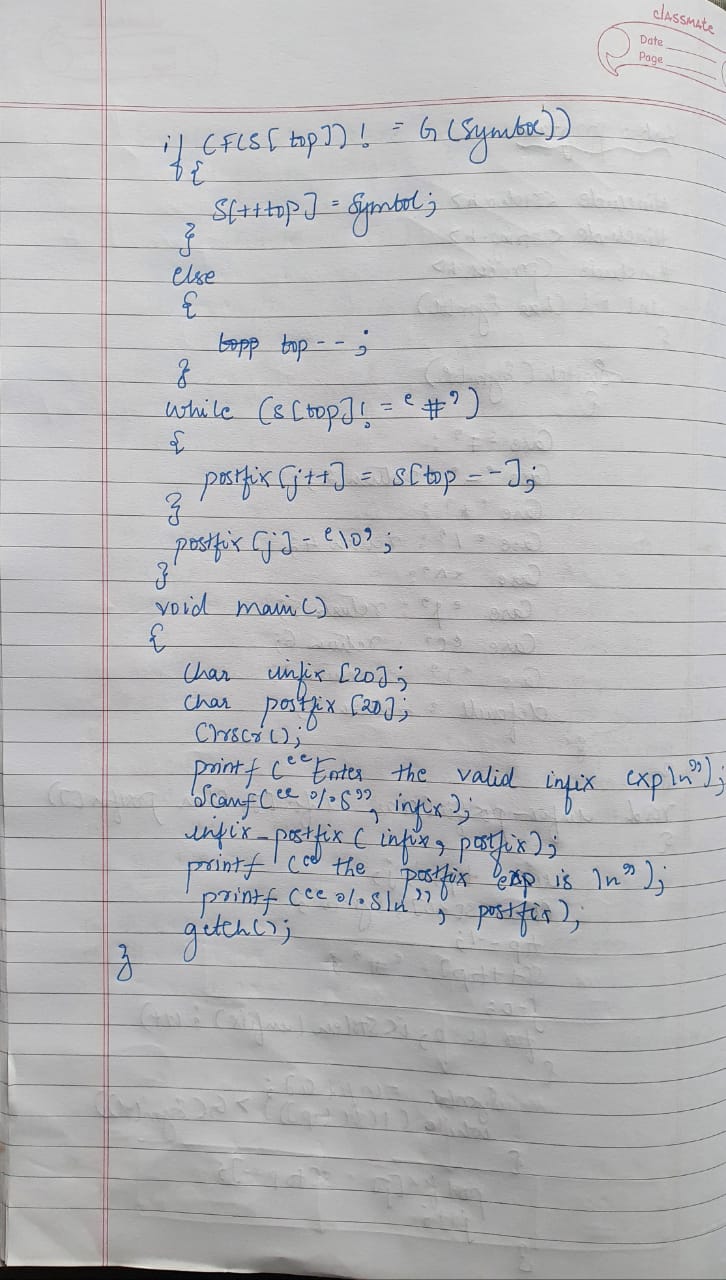 classmate
Date
Page
if (F(S[top])! = G(Symbol))
{
S[++top] = Symbol;
}
else
{
top--;
}
while (s[top]! = '#')
{
postfix[j++] = s[top--];
}
postfix[j] - '\0';
}
void main()
{
char infix [20];
char postfix [20];
Clrscr();
printf ("Enter the valid infix exp\n");
Scanf("%s", infix);
infix_postfix (infix, postfix);
printf ("the postfix exp is \n");
printf ("%s\n", postfix);
getch();
}